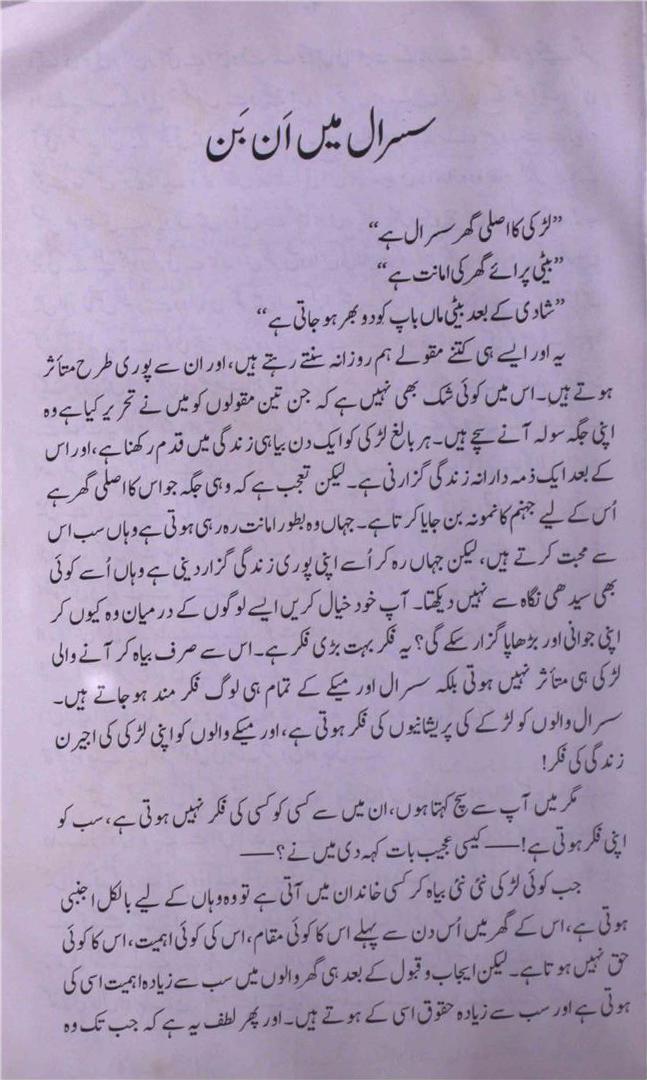 سسرال میں اَن بَن
”لڑکی کا اصلی گھر سسرال ہے“
”بیٹی پرائے گھر کی امانت ہے“
”شادی کے بعد بیٹی ماں باپ کو دوبھر ہو جاتی ہے“
یہ اور ایسے ہی کتنے مقولے ہم روزانہ سنتے رہتے ہیں، اور ان سے پوری طرح متأثر
ہوتے ہیں۔ اس میں کوئی شک بھی نہیں ہے کہ جن تین مقولوں کو میں نے تحریر کیا ہے وہ
اپنی جگہ سولہ آنے سچے ہیں۔ ہر بالغ لڑکی کو ایک دن بیاہی زندگی میں قدم رکھنا ہے، اور اس
کے بعد ایک ذمہ دارانہ زندگی گزارنی ہے۔ لیکن تعجب ہے کہ وہی جگہ جو اس کا اصلی گھر ہے
اُس کے لیے جہنم کا نمونہ بن جایا کرتا ہے۔ جہاں وہ بطور امانت رہ رہی ہوتی ہے وہاں سب اس
سے محبت کرتے ہیں، لیکن جہاں رہ کر اُسے اپنی پوری زندگی گزار دینی ہے وہاں اُسے کوئی
بھی سیدھی نگاہ سے نہیں دیکھتا۔ آپ خود خیال کریں ایسے لوگوں کے درمیان وہ کیوں کر
اپنی جوانی اور بڑھاپا گزار سکے گی؟ یہ فکر بہت بڑی فکر ہے۔ اس سے صرف بیاہ کر آنے والی
لڑکی ہی متأثر نہیں ہوتی بلکہ سسرال اور میکے کے تمام ہی لوگ فکر مند ہو جاتے ہیں۔
سسرال والوں کو لڑکے کی پریشانیوں کی فکر ہوتی ہے، اور میکے والوں کو اپنی لڑکی کی اجیرن
زندگی کی فکر!
مگر میں آپ سے سچ کہتا ہوں، ان میں سے کسی کو کسی کی فکر نہیں ہوتی ہے، سب کو
اپنی فکر ہوتی ہے! —— کیسی عجیب بات کہہ دی میں نے؟ ——
جب کوئی لڑکی نئی نئی بیاہ کر کسی خاندان میں آتی ہے تو وہ وہاں کے لیے بالکل اجنبی
ہوتی ہے، اس کے گھر میں اُس دن سے پہلے اس کا کوئی مقام، اس کی کوئی اہمیت، اس کا کوئی
حق نہیں ہوتا ہے۔ لیکن ایجاب و قبول کے بعد ہی گھر والوں میں سب سے زیادہ اہمیت اسی کی
ہوتی ہے اور سب سے زیادہ حقوق اسی کے ہوتے ہیں۔ اور پھر لطف یہ ہے کہ جب تک وہ